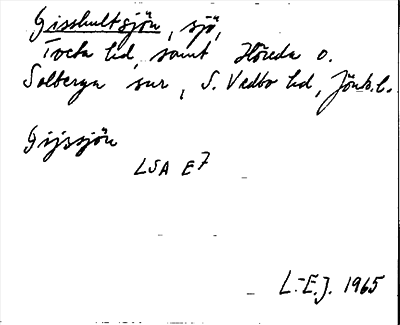 Gisshultsjön, sjö,
Tveta hd, samt Höreda o.
Solberga snr, S. Vedbo hd, Jönk. l.
Gijssjön
LSA E7
L.-E.J. 1965